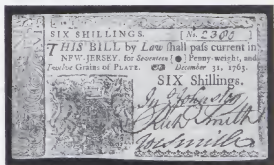 SIX SHILLINGS. [No. 2380]
THIS BILL by Law shall pass current in
NEW-JERSEY, for Seventeen Penny-weight, and
Twelve Grains of PLATE. December 31, 1763.
SIX Shillings.
Johnston
Smith
Smith